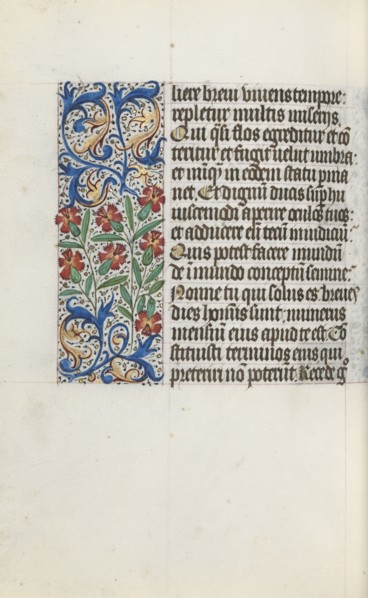 liere breui viuens tempore:
repletur multis miserijs.
Qui q̄si flos egreditur et cō
teritur et fugit uelut umbra:
et nūq̄ in eodem statu p̄ma
net. Et dignum ducis sup̄ hu
iuscemodi aperire oculos tuos:
et adducere eū tecū in iudiciū.
Quis potest facere mundū
de īmundo conceptū semine:
Nonne tu qui solus es: breues
dies hoīnis sunt: numerus
mensiū eius apud te est. Cō
stituisti terminos eius qui
preteriri nō poterūt. Recede g̊